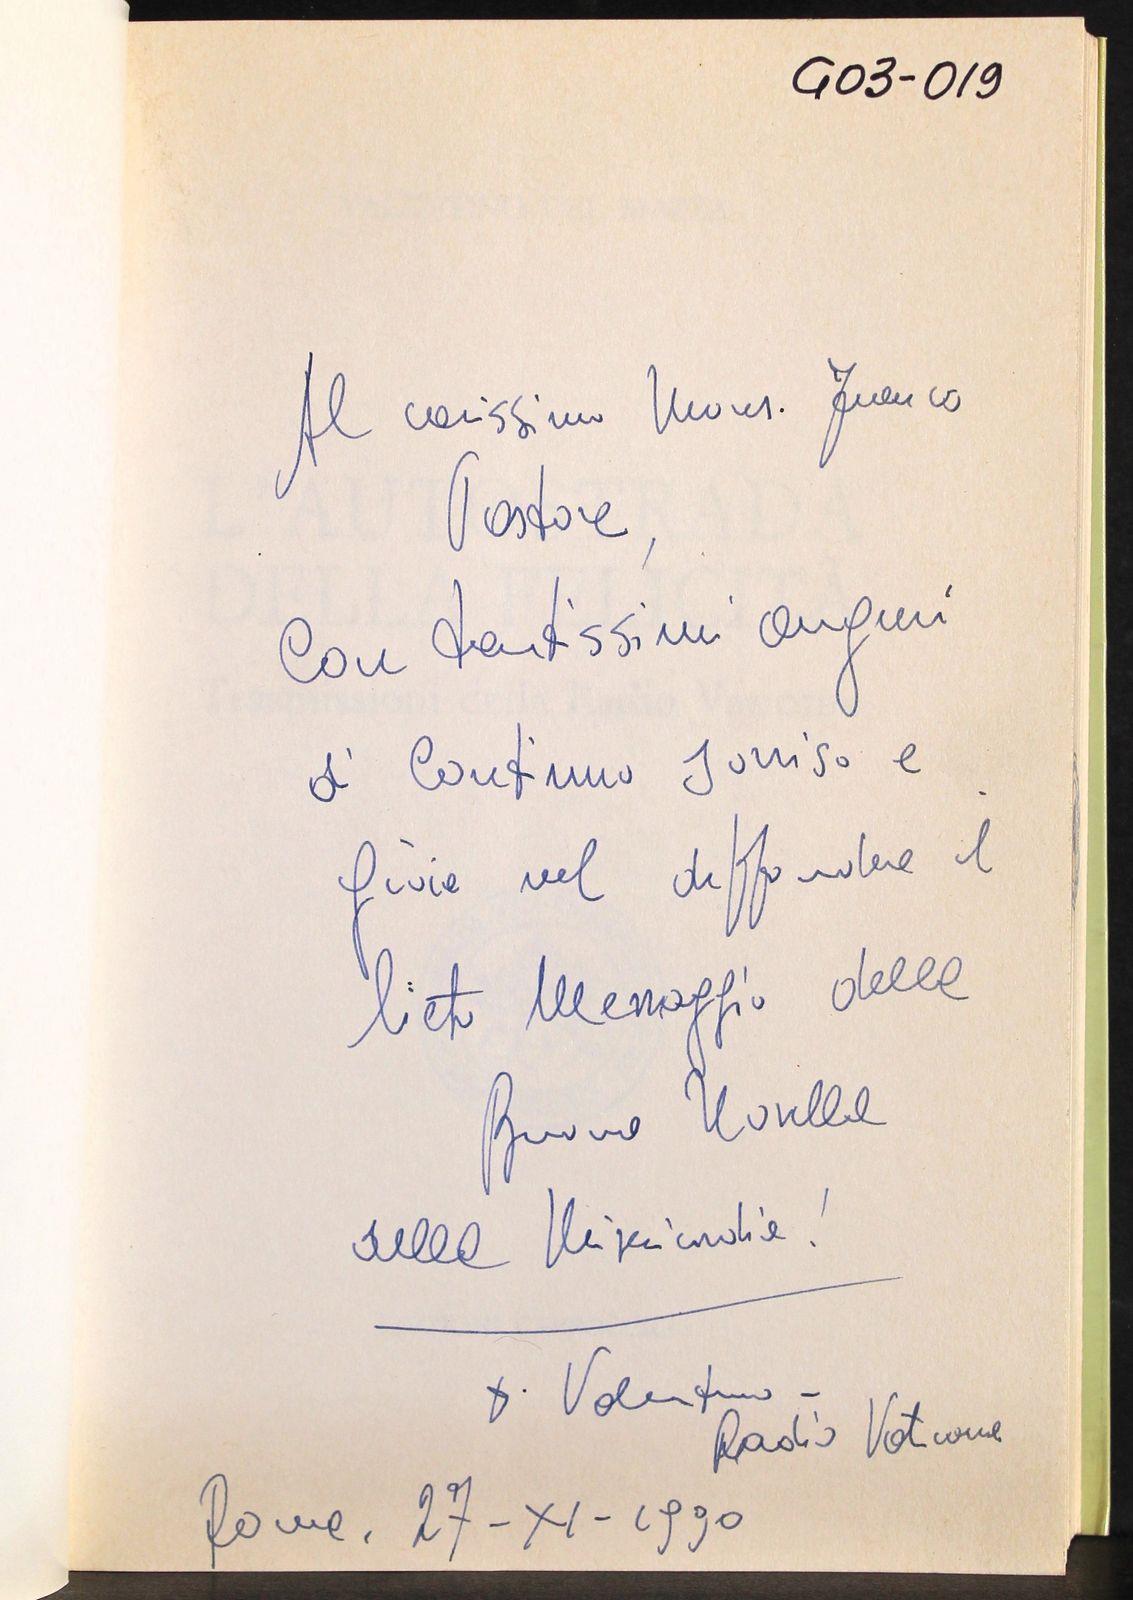 G03-019
Al carissimo Mons. Franco
Pastore,
Con tantissimi auguri
di Continuo sorriso e
gioia nel diffondere il
lieto Messaggio della
Buona Novella
della Misericordia!
d. Valentino -
Radio Vaticana
Roma, 27-XI-1990
L'AUTOSTRADA
DELLA FELICITÀ
Trasmissioni della Radio Vaticana